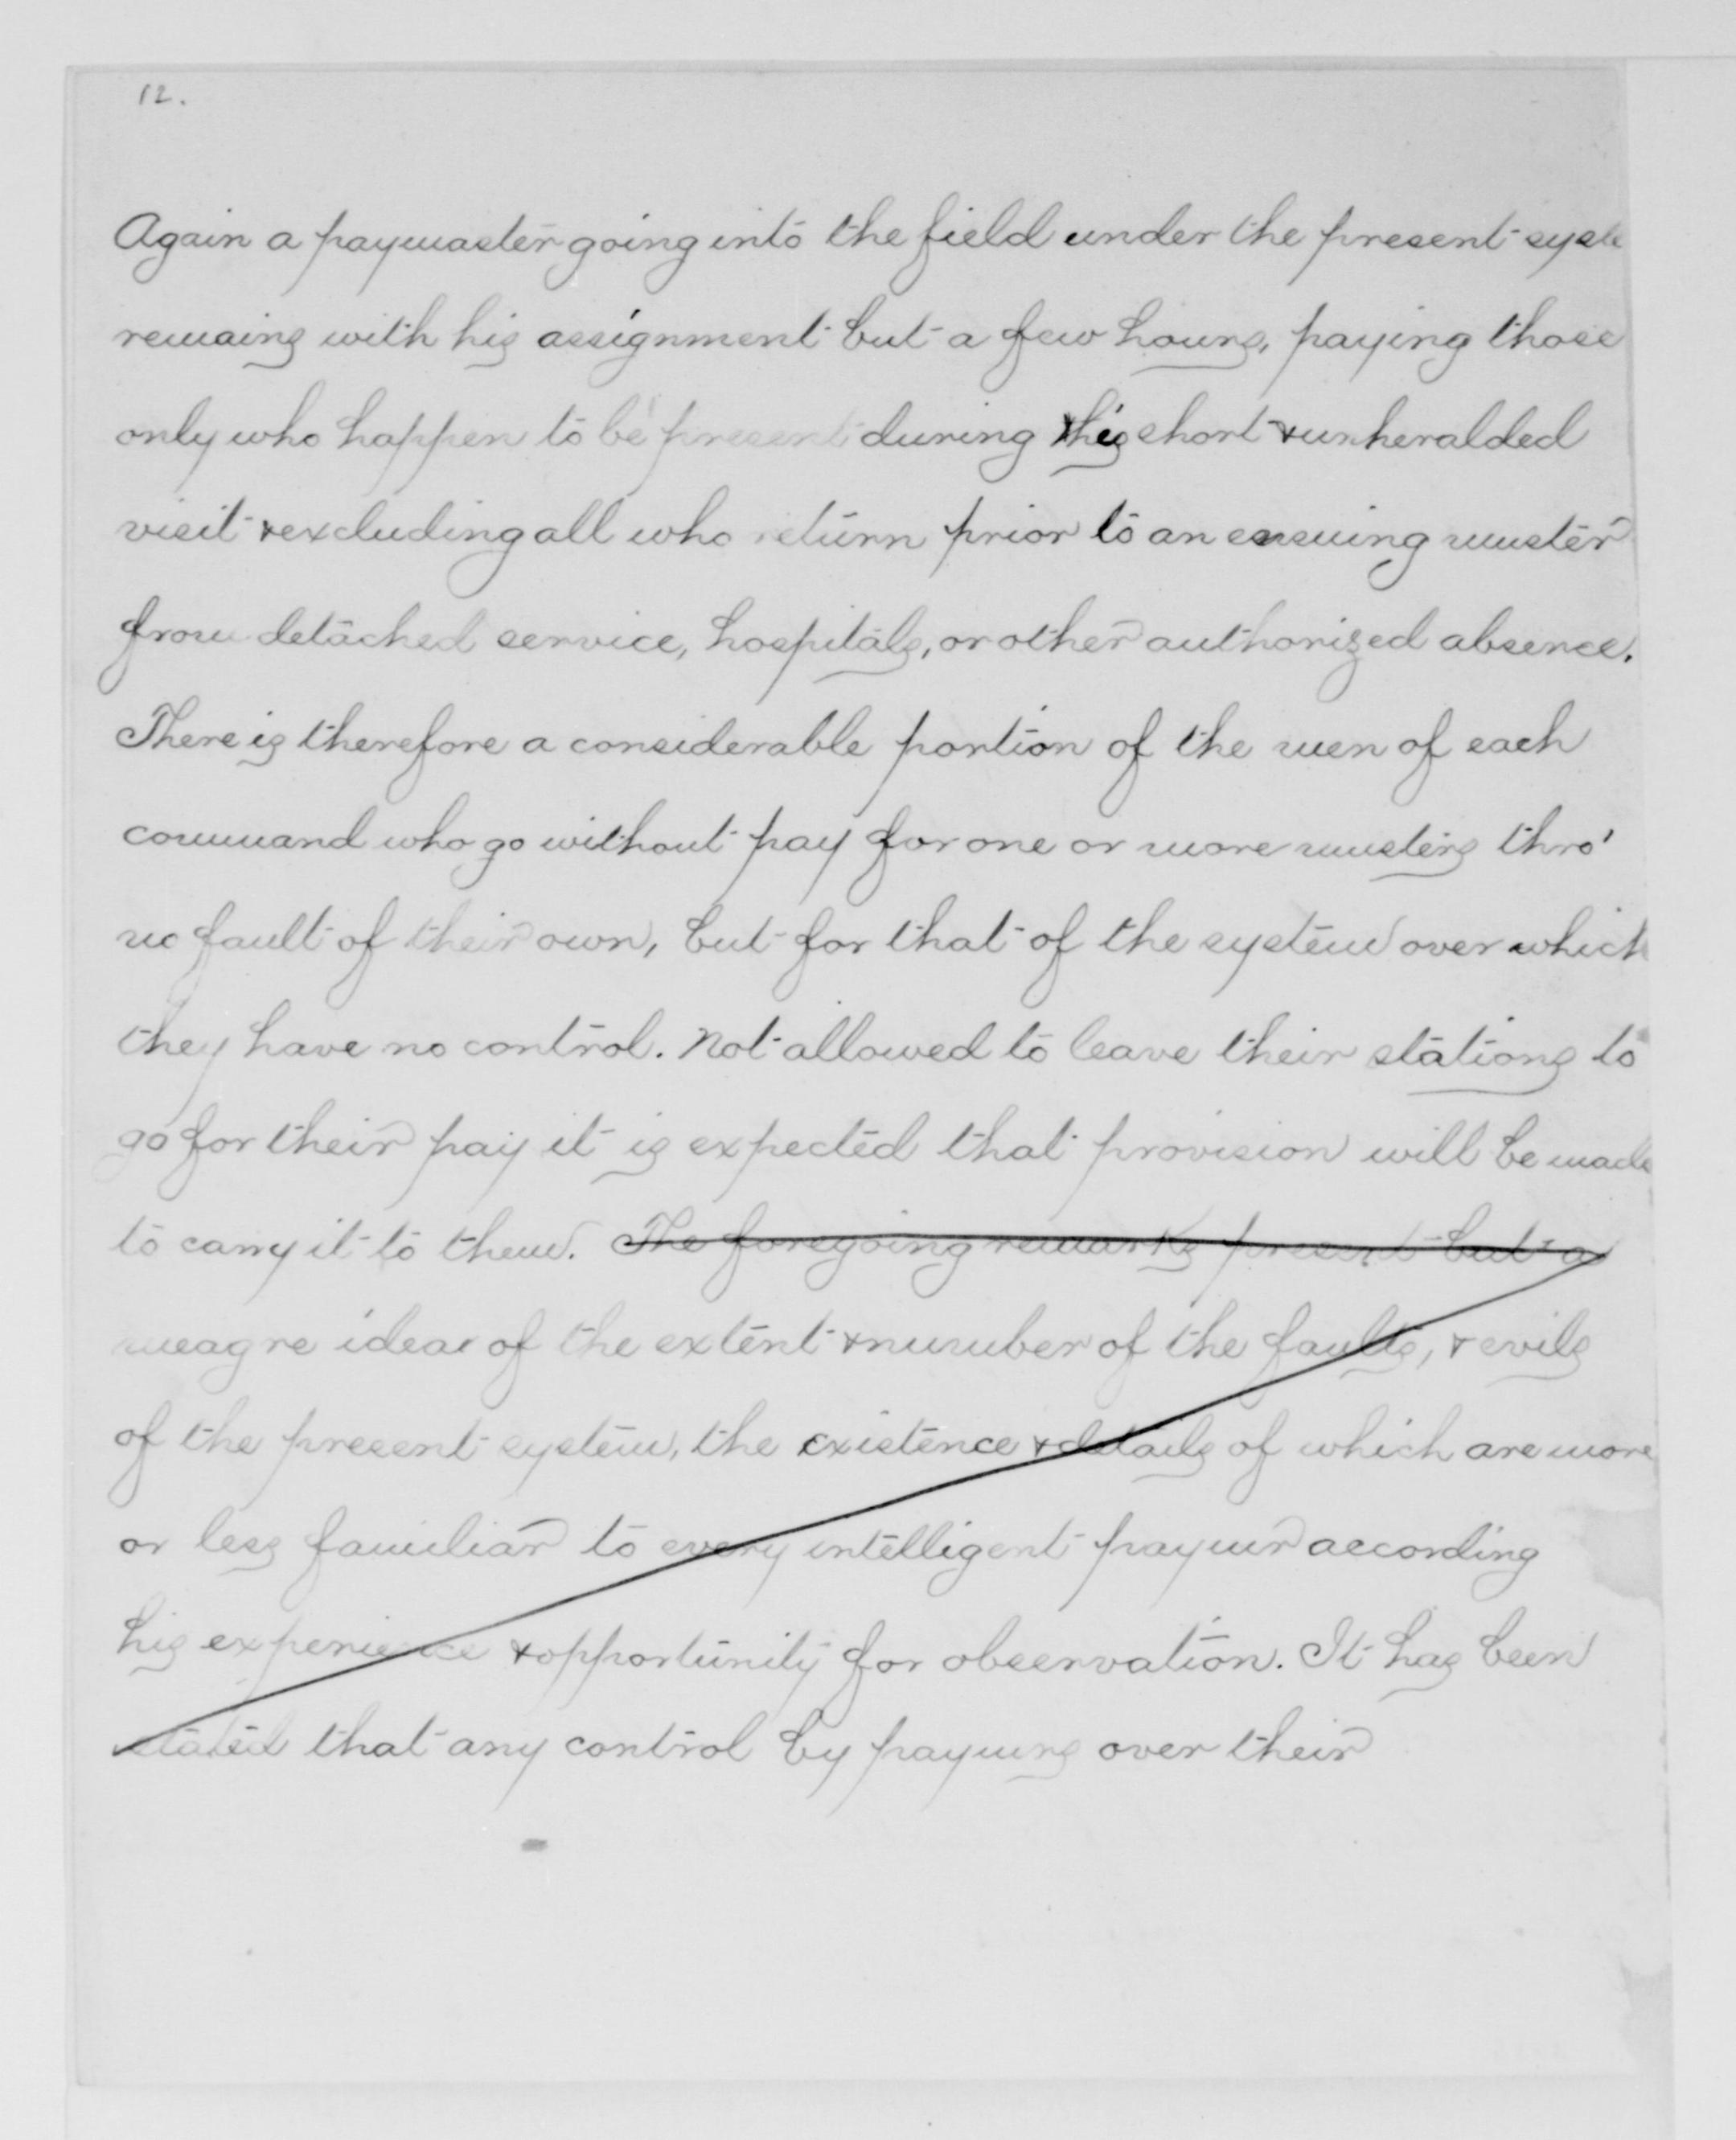 12.
Again a paymaster going into the field under the present syste
remains with his assignment but a few hours, paying those
only who happen to be present during his short & unheralded
visit & excluding all who return prior to an ensuing muster
from detached service, hospitals, or other authorized absence.
There is therefore a considerable portion of the men of each
command who go without pay for one or more musters thro'
no fault of their own, but for that of the system over which
they have no control. Not allowed to leave their stations to
go for their pay it is expected that provision will be made
to carry it to them. The foregoing remarks present but a
meagre idea of the extent & number of the faults, & evils
of the present system, the existence & details of which are more
or less familiar to every intelligent paymr according
his experience & opportunity for observation. It has been
stated that any control by paymrs over their